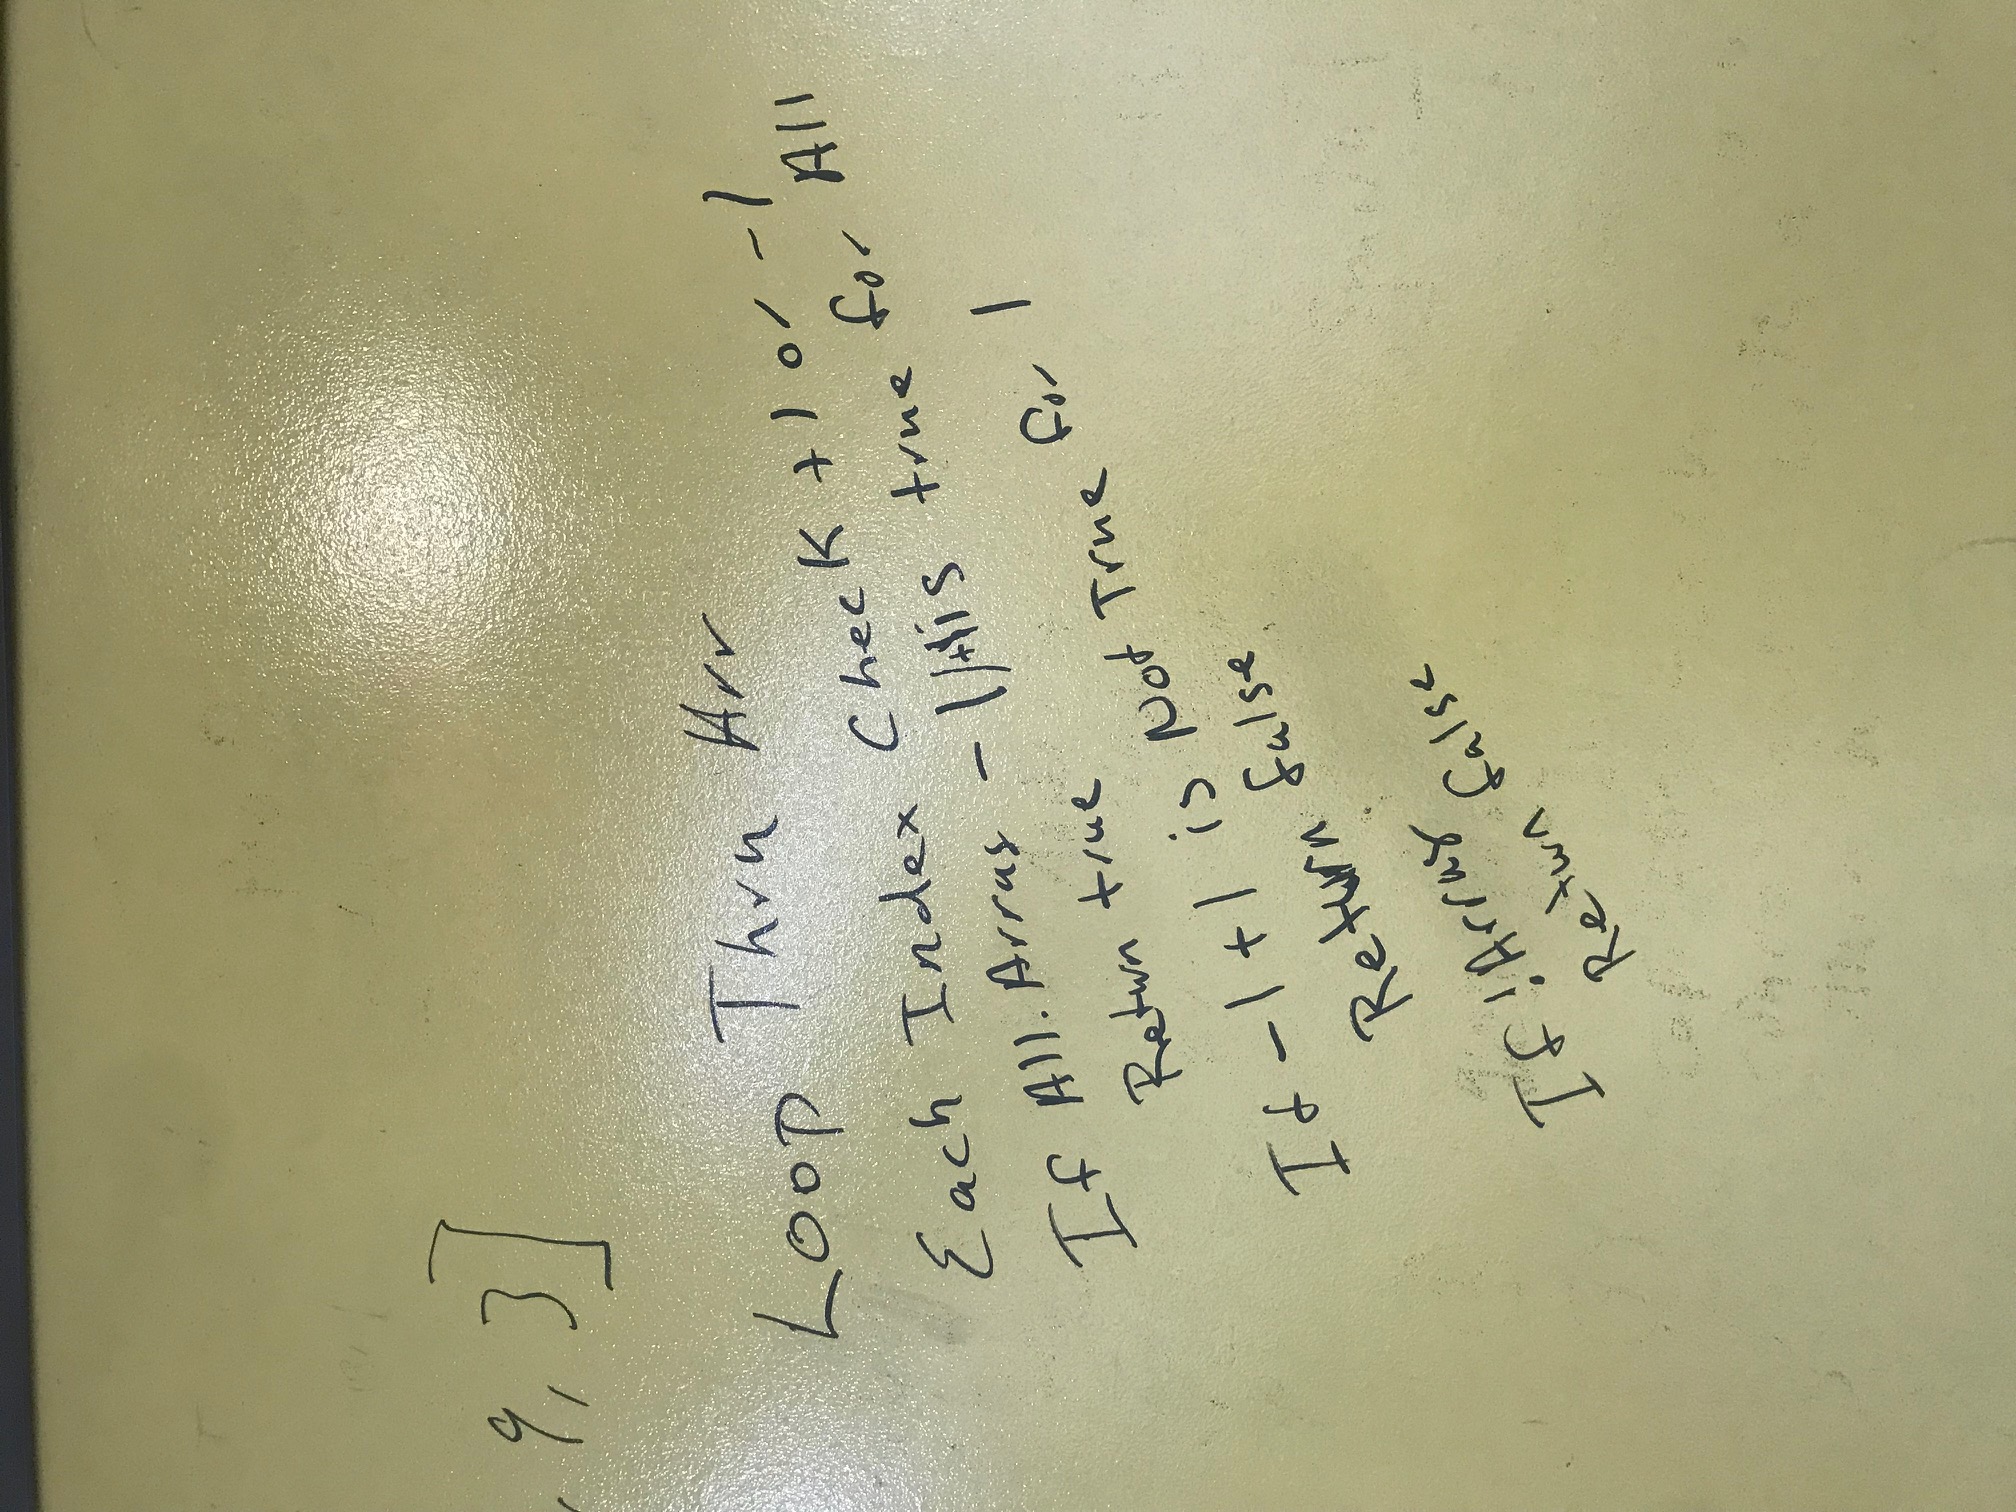 , 9, 3]
Loop Thru Arr
Each Index Check +1 or -1
If All. Array -1/+1 is true for All
Return true
If -1 +1 is Not True for 1
Return false
If !Array
Return false